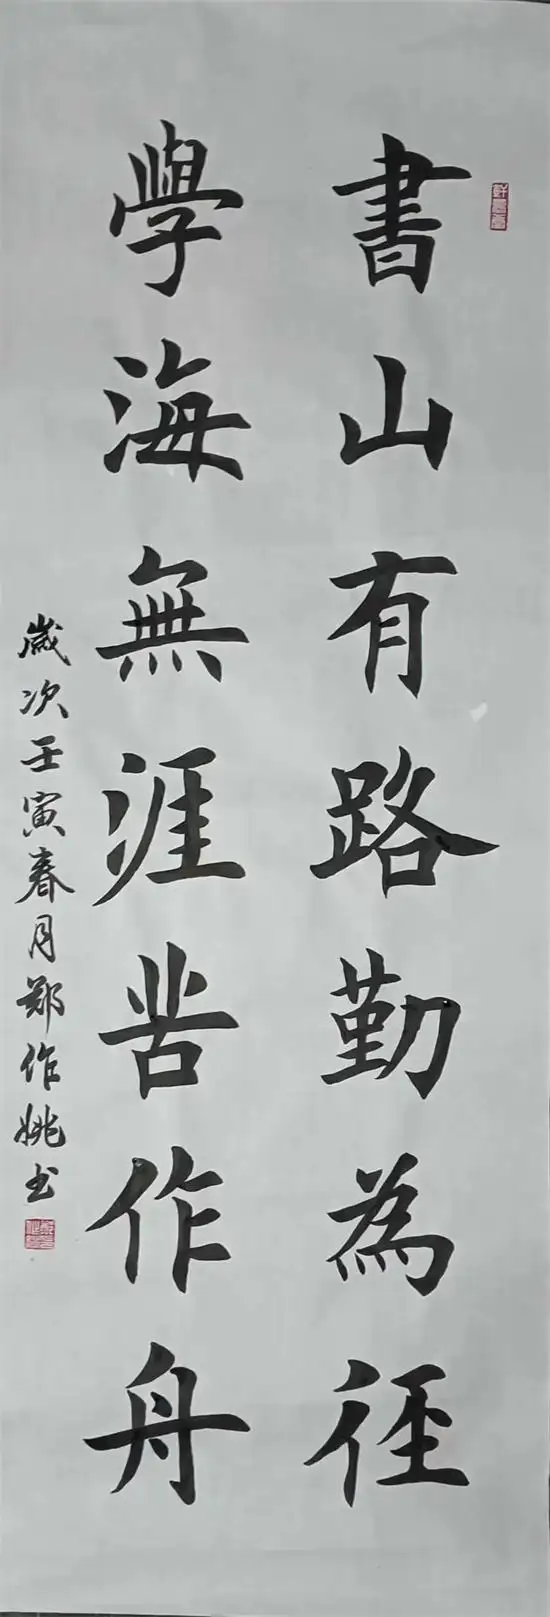 書山有路勤為徑
學海無涯苦作舟
歲次壬寅春月鄭作姚書